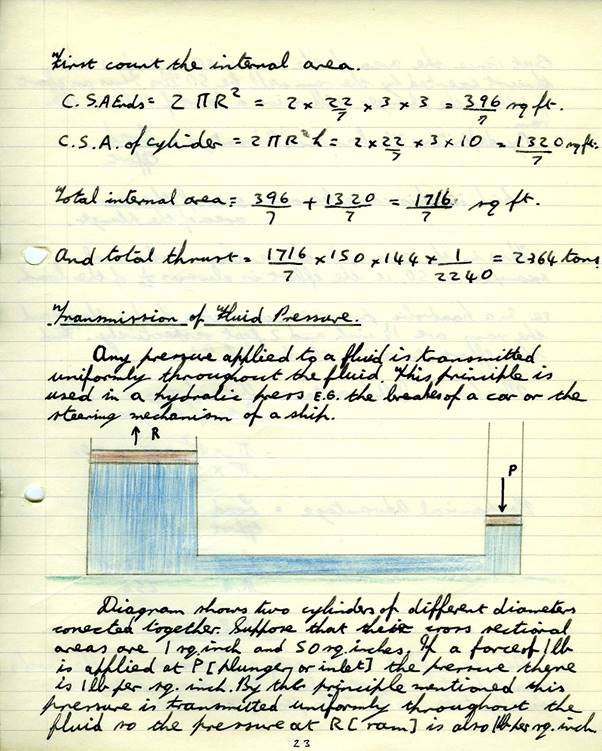 First count the internal area.
C.S.A Ends = 2 π R² = 2 × 22/7 × 3 × 3 = 396/7 sq ft.
C.S.A. of cylinder = 2πR h = 2 × 22/7 × 3 × 10 = 1320/7 sq ft.
Total internal area = 396/7 + 1320/7 = 1716/7 sq ft.
And total thrust = 1716/7 × 150 × 144 × 1/2240 = 2364 tons
Transmission of Fluid Pressure.
Any pressure applied to a fluid is transmitted
uniformly throughout the fluid. This principle is
used in a hydralic press E.G. the breakes of a car or the
steering mechanism of a ship.
↑ R
P
↓
Diagram shows two cylinders of different diameters
conected together. Suppose that their cross sectional
areas are 1 sq. inch and 50 sq. inches, If a force of 1 lb
is applied at P [plunger or inlet] the pressure there
is 1 lb per sq. inch. By the principle mentioned this
pressure is transmitted uniformly throughout the
fluid so the pressure at R [ram] is also 1lb per sq. inch
23